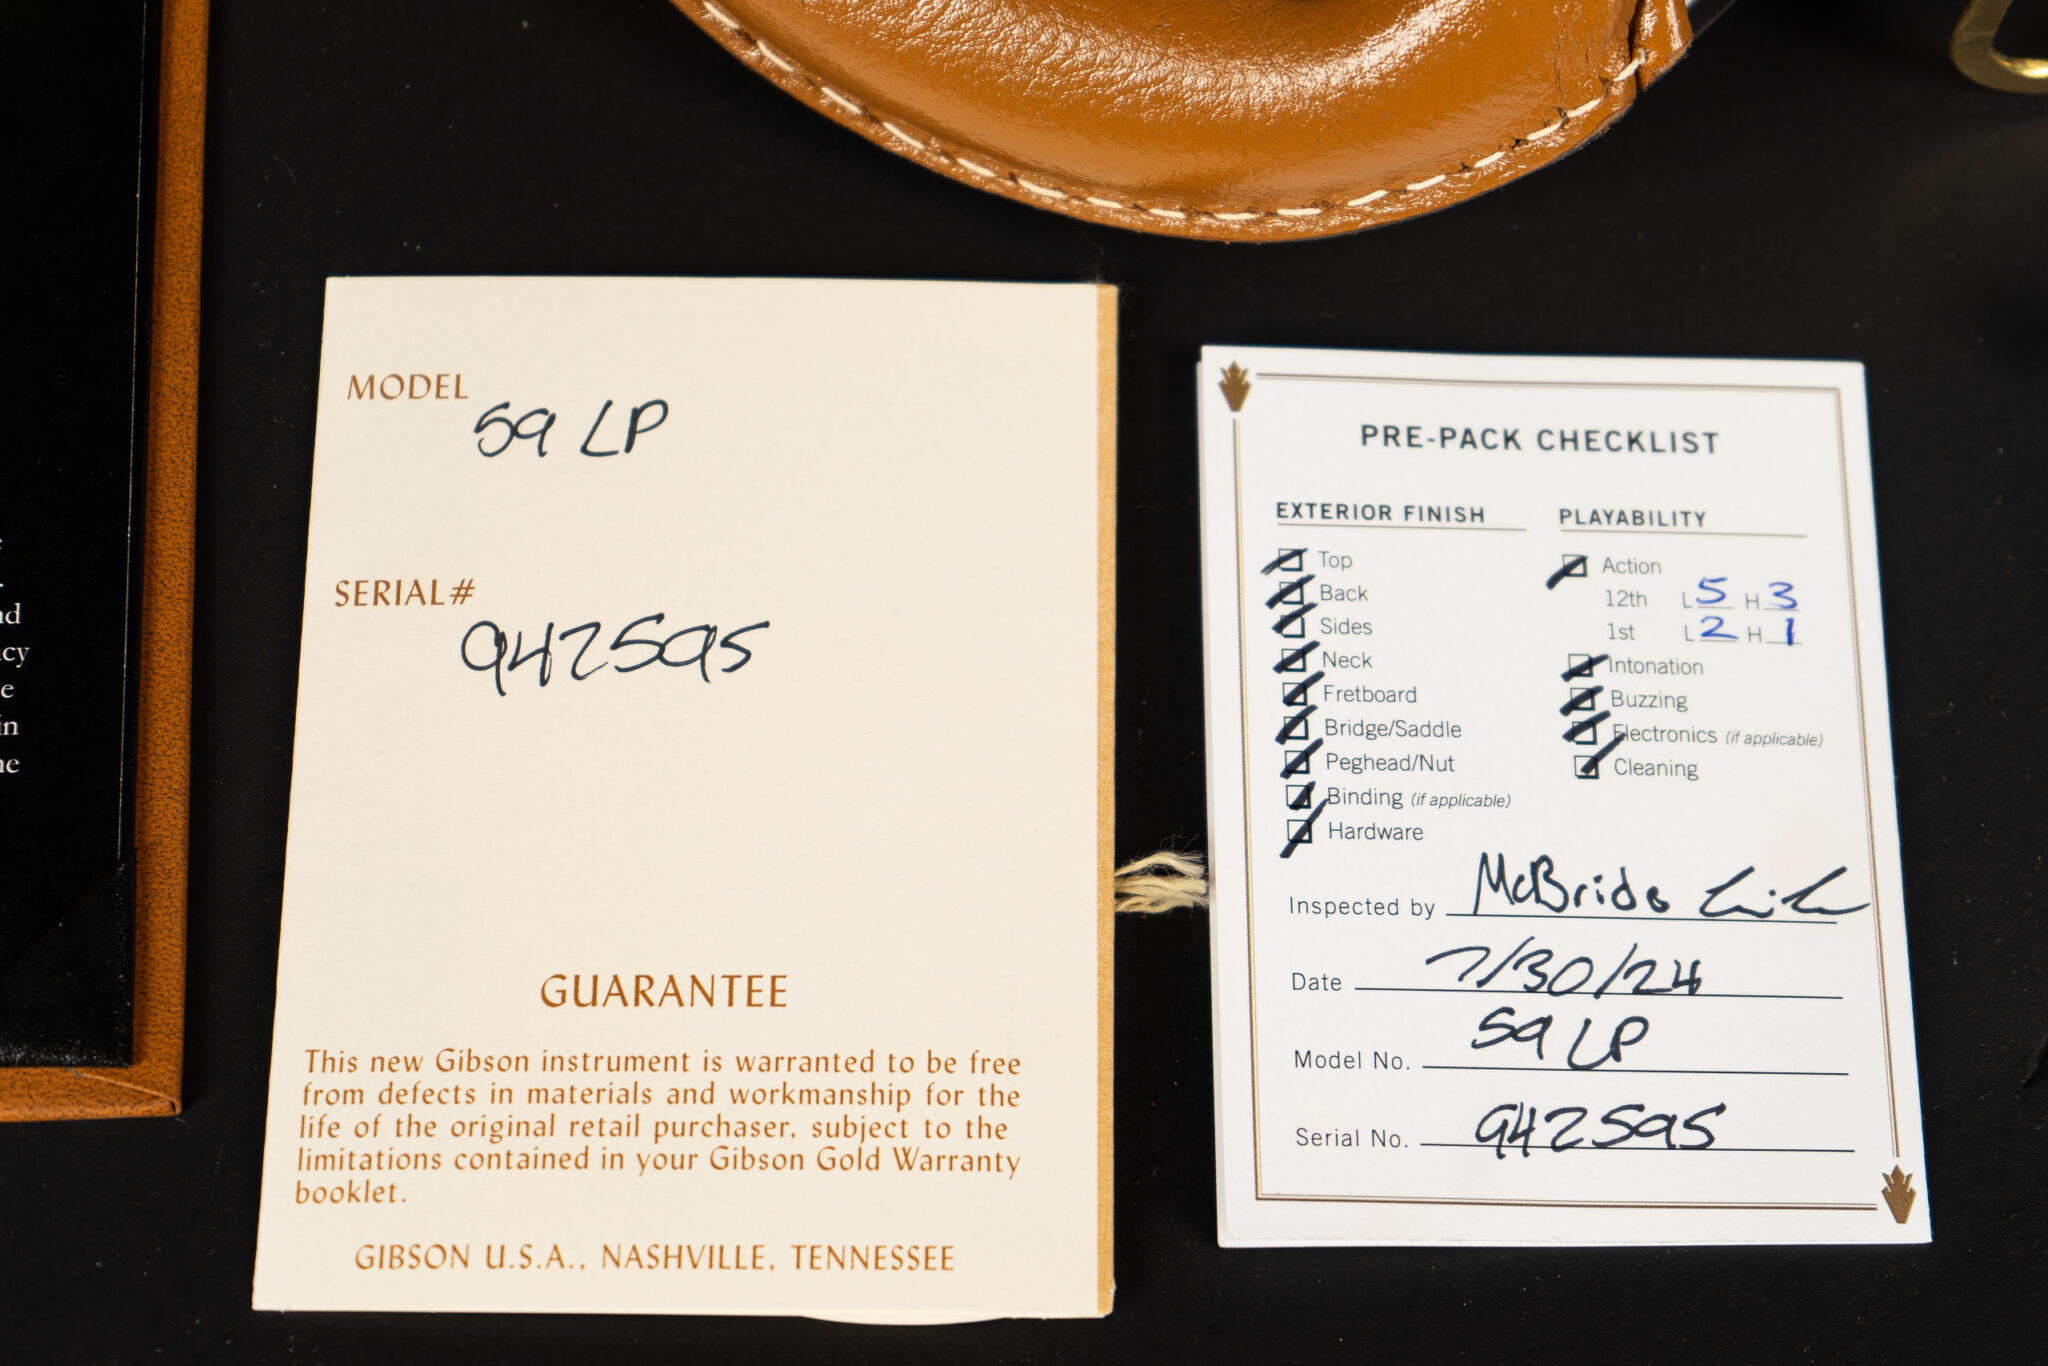 nd
cy
e
in
ne
MODEL 59 LP
SERIAL# 942595
GUARANTEE
This new Gibson instrument is warranted to be free
from defects in materials and workmanship for the
life of the original retail purchaser, subject to the
limitations contained in your Gibson Gold Warranty
booklet.
GIBSON U.S.A., NASHVILLE, TENNESSEE
PRE-PACK CHECKLIST
EXTERIOR FINISH
Top
Back
Sides
Neck
Fretboard
Bridge/Saddle
Peghead/Nut
Binding (if applicable)
Hardware
PLAYABILITY
Action
12th L 5 H 3
1st L 2 H 1
Intonation
Buzzing
Electronics (if applicable)
Cleaning
Inspected by McBride
Date 7/30/24
Model No. 59 LP
Serial No. 942595